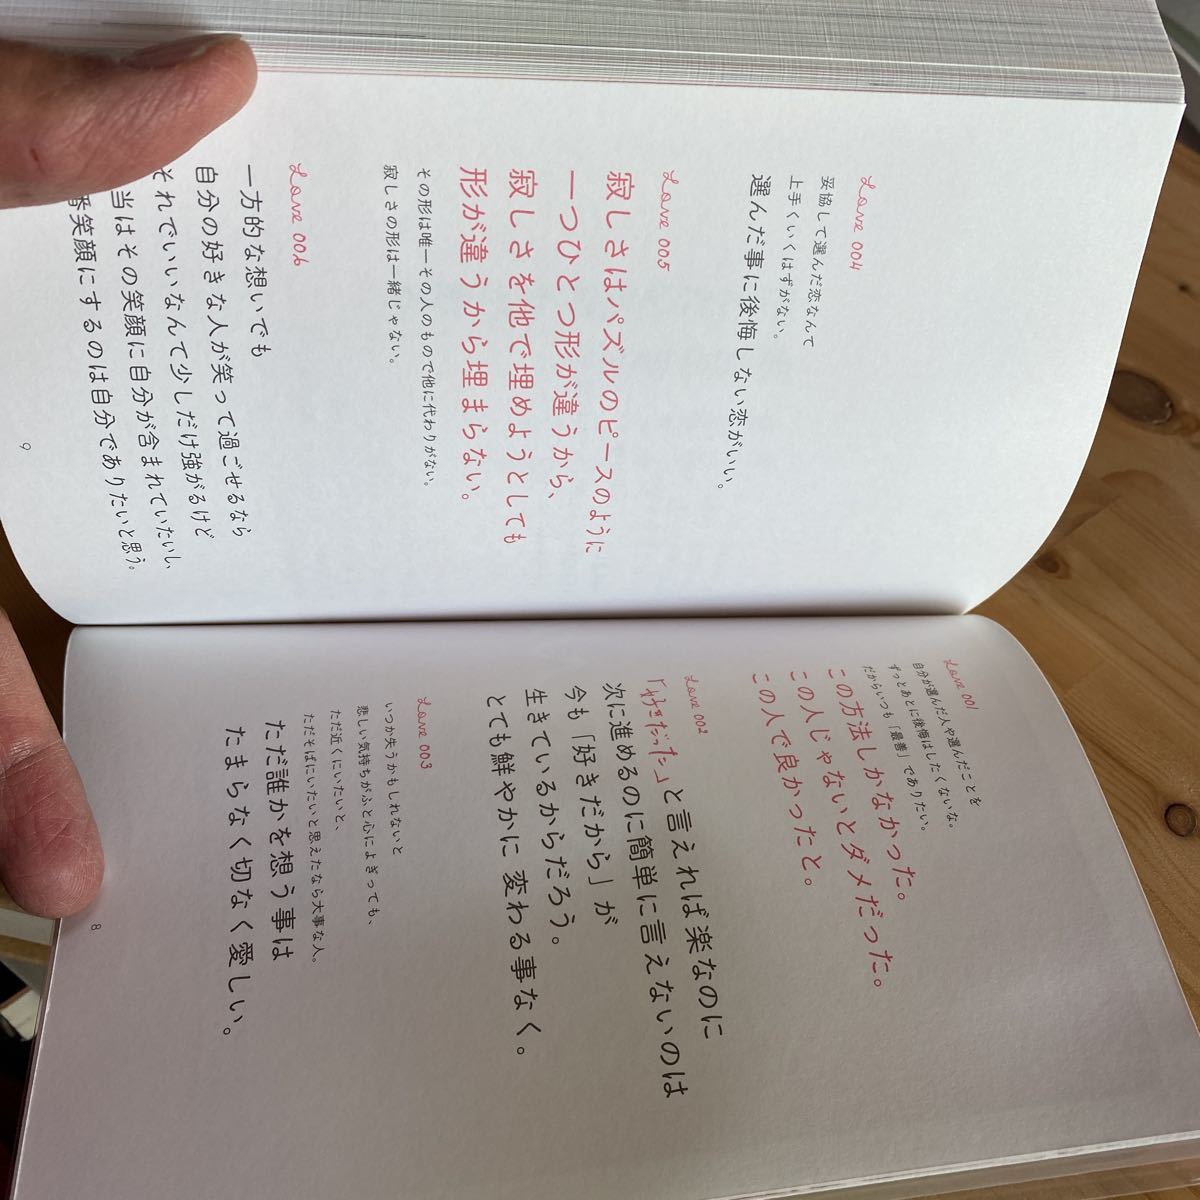 Love 001
自分が選んだ人や選んだことを
ずっとあとに後悔はしたくないな。
だからいつも「最善」でありたい。
この方法しかなかった。
この人じゃないとダメだった。
この人で良かったと。
Love 002
「好きだった」と言えれば楽なのに
次に進めるのに簡単に言えないのは
今も「好きだから」が
生きているからだろう。
とても鮮やかに変わる事なく。
Love 003
いつか失うかもしれないと
悲しい気持ちがふと心によぎっても、
ただ近くにいたいと、
ただそばにいたいと思えたなら大事な人。
ただ誰かを想う事は
たまらなく切なく愛しい。
8
Love 004
妥協して選んだ恋なんて
上手くいくはずがない。
選んだ事に後悔しない恋がいい。
Love 005
寂しさはパズルのピースのように
一つひとつ形が違うから、
寂しさを他で埋めようとしても
形が違うから埋まらない。
その形は唯一その人のもので他に代わりがない。
寂しさの形は一緒じゃない。
Love 006
一方的な想いでも
自分の好きな人が笑って過ごせるなら
それでいいなんて少しだけ強がるけど
当はその笑顔に自分が含まれていたいし、
番笑顔にするのは自分でありたいと思う。
9